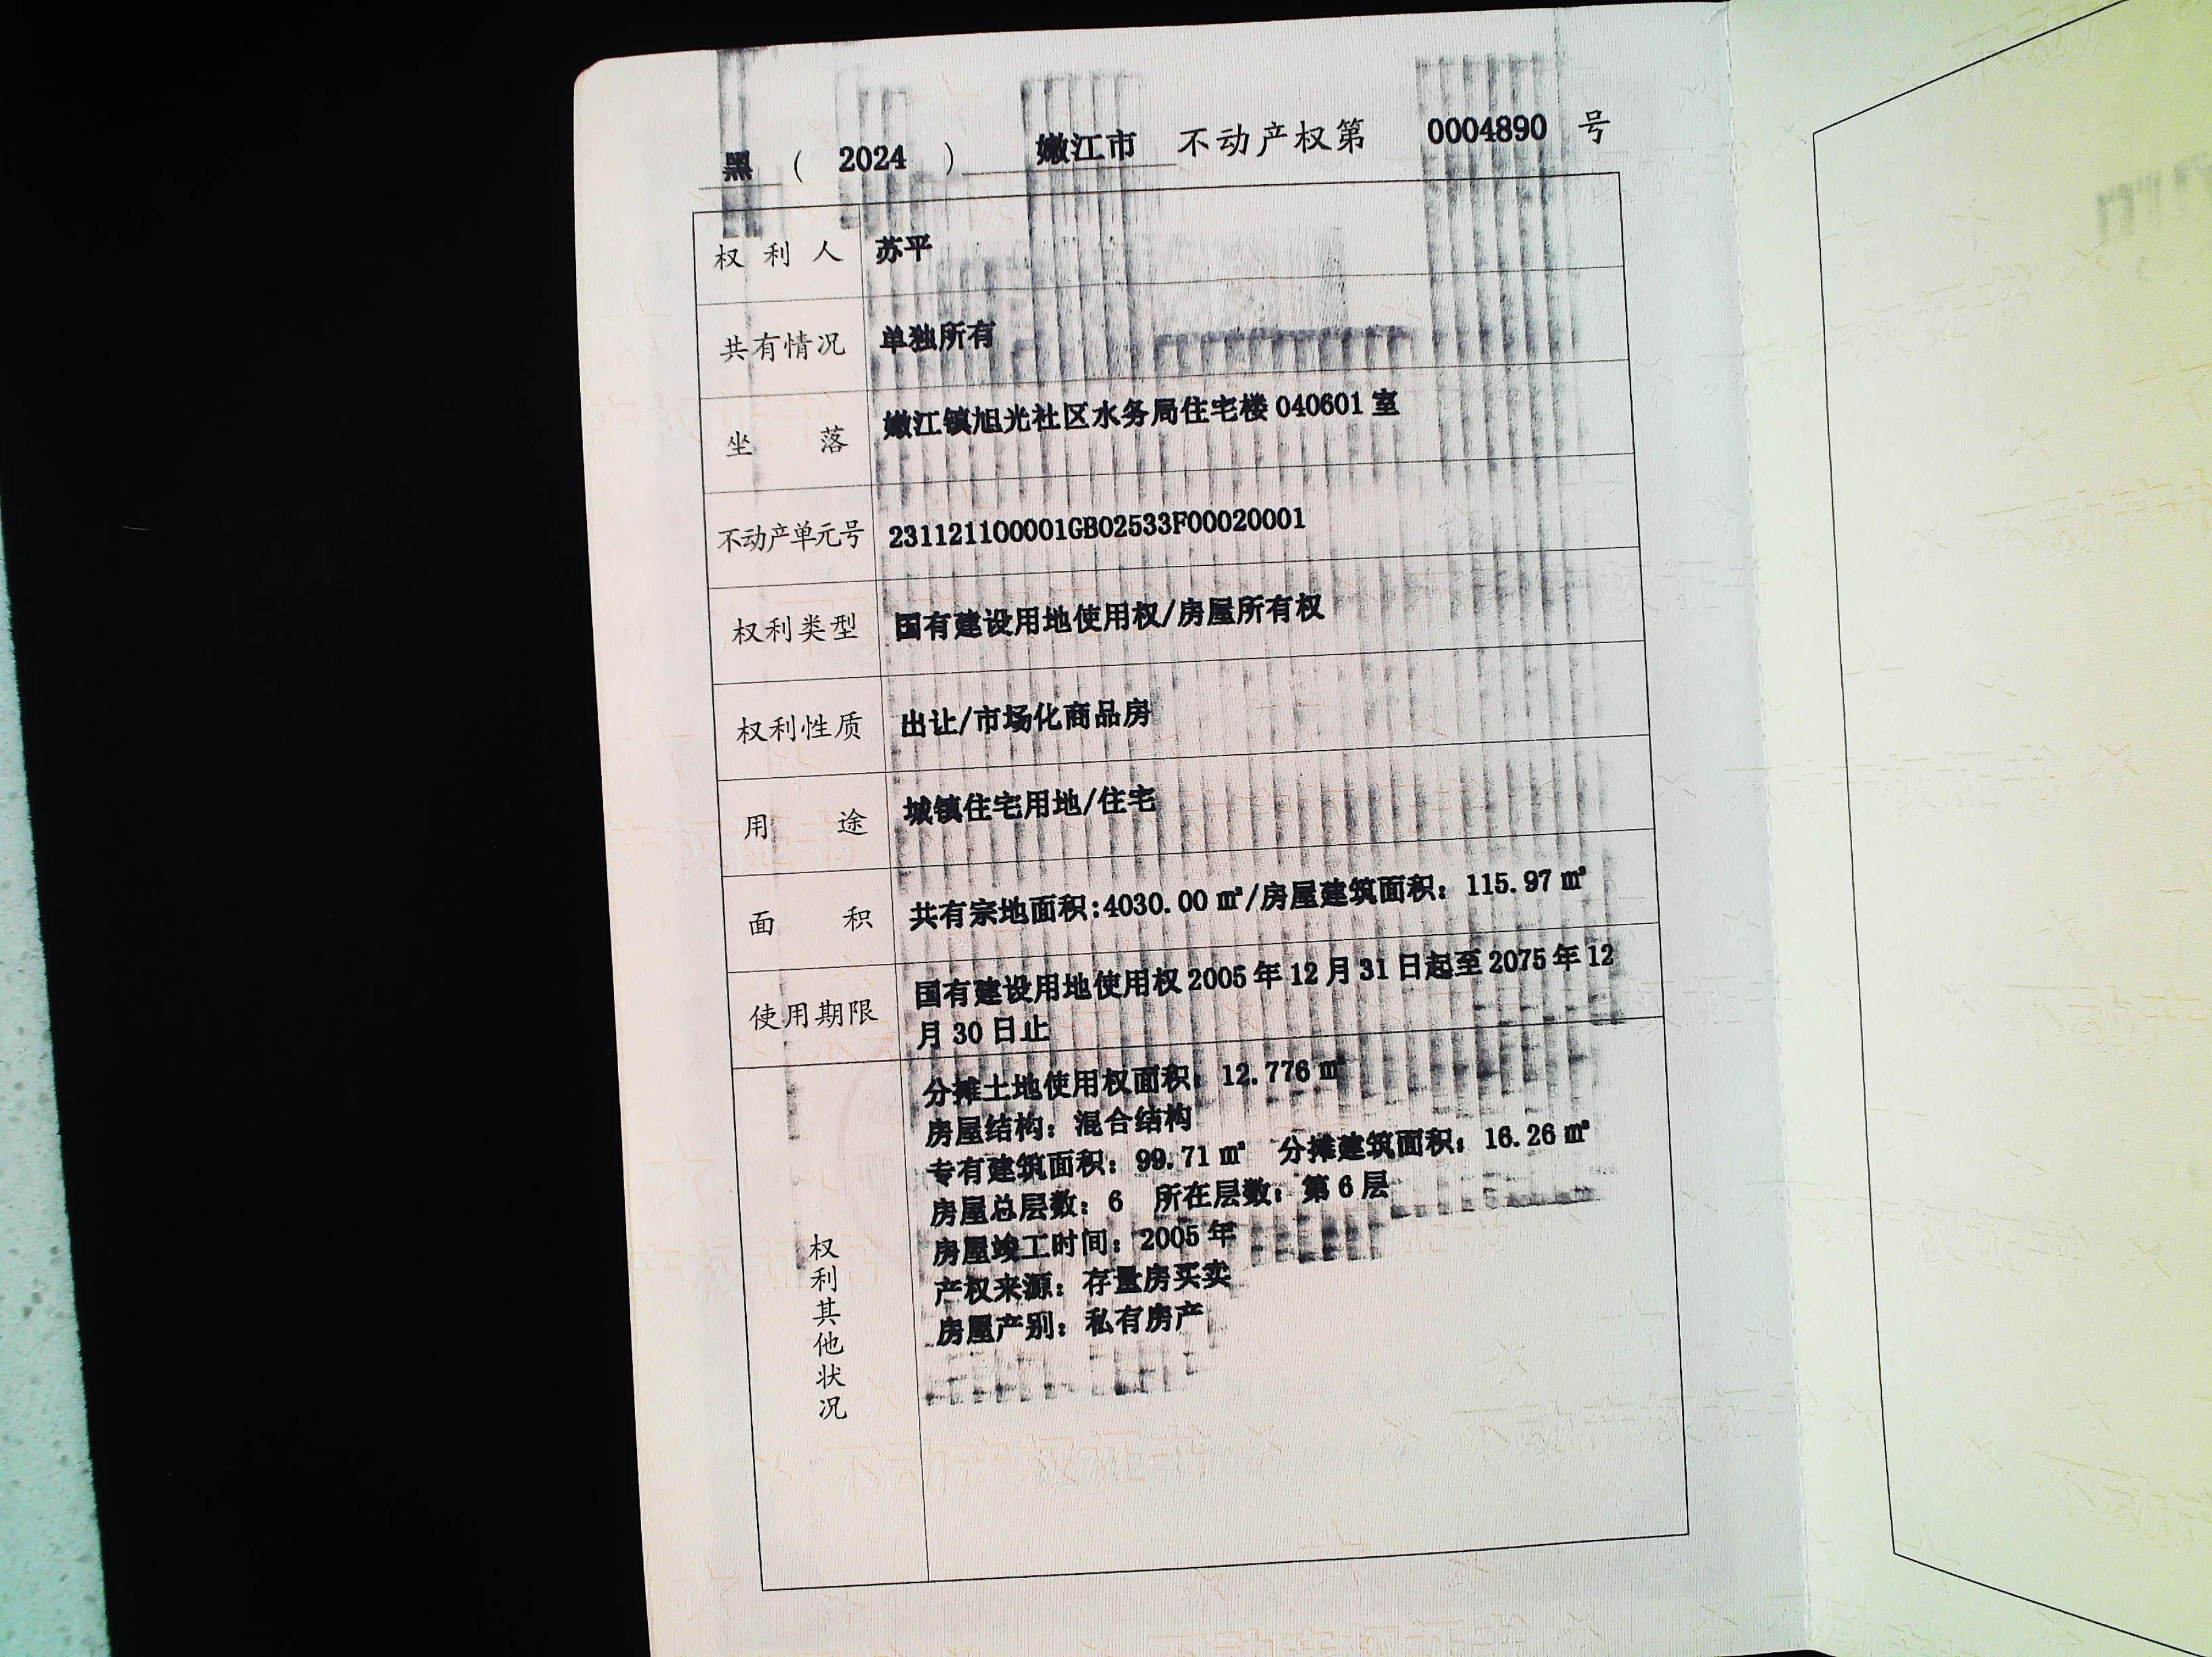 黑 ( 2024 ) 嫩江市 不动产权第 0004890 号
权利人 苏平
共有情况 单独所有
坐落 嫩江镇旭光社区水务局住宅楼 040601 室
不动产单元号 231121100001GB02533F00020001
权利类型 国有建设用地使用权/房屋所有权
权利性质 出让/市场化商品房
用途 城镇住宅用地/住宅
面积 共有宗地面积:4030.00 ㎡/房屋建筑面积：115.97 ㎡
使用期限 国有建设用地使用权 2005 年 12 月 31 日起至 2075 年 12
月 30 日止
权利其他状况
分摊土地使用权面积：12.776 ㎡
房屋结构：混合结构
专有建筑面积：99.71 ㎡ 分摊建筑面积：16.26 ㎡
房屋总层数：6 所在层数：第 6 层
房屋竣工时间：2005 年
产权来源：存量房买卖
房屋产别：私有房产